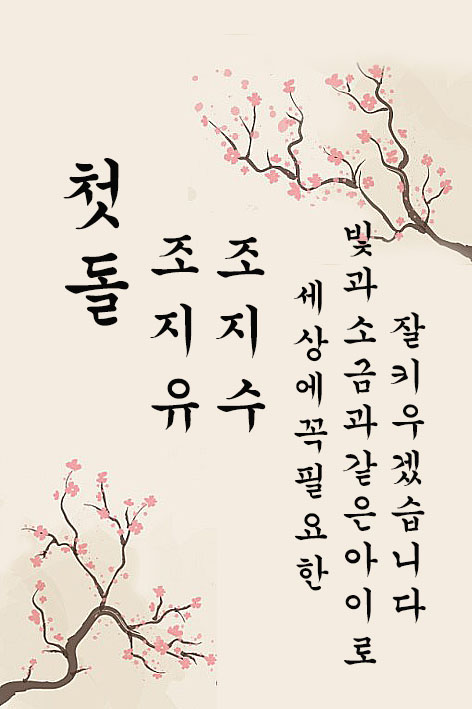 첫돌
조지유
조지수
세상에꼭필요한
빛과소금과같은아이로
잘키우겠습니다